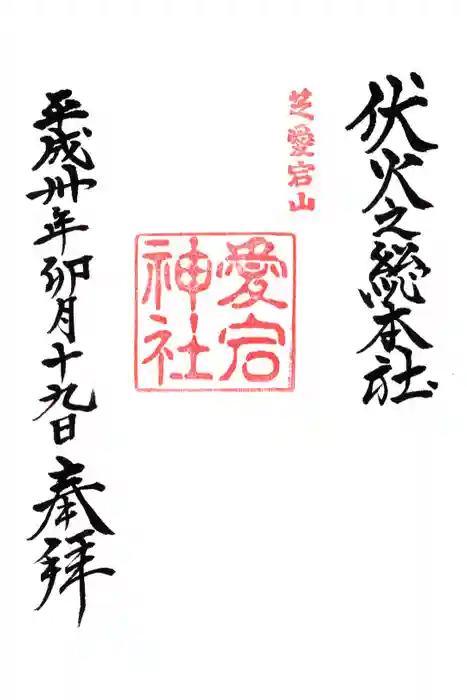 伏火之総本社
芝愛宕山
愛宕
神社
平成卅年卯月十九日
奉拝